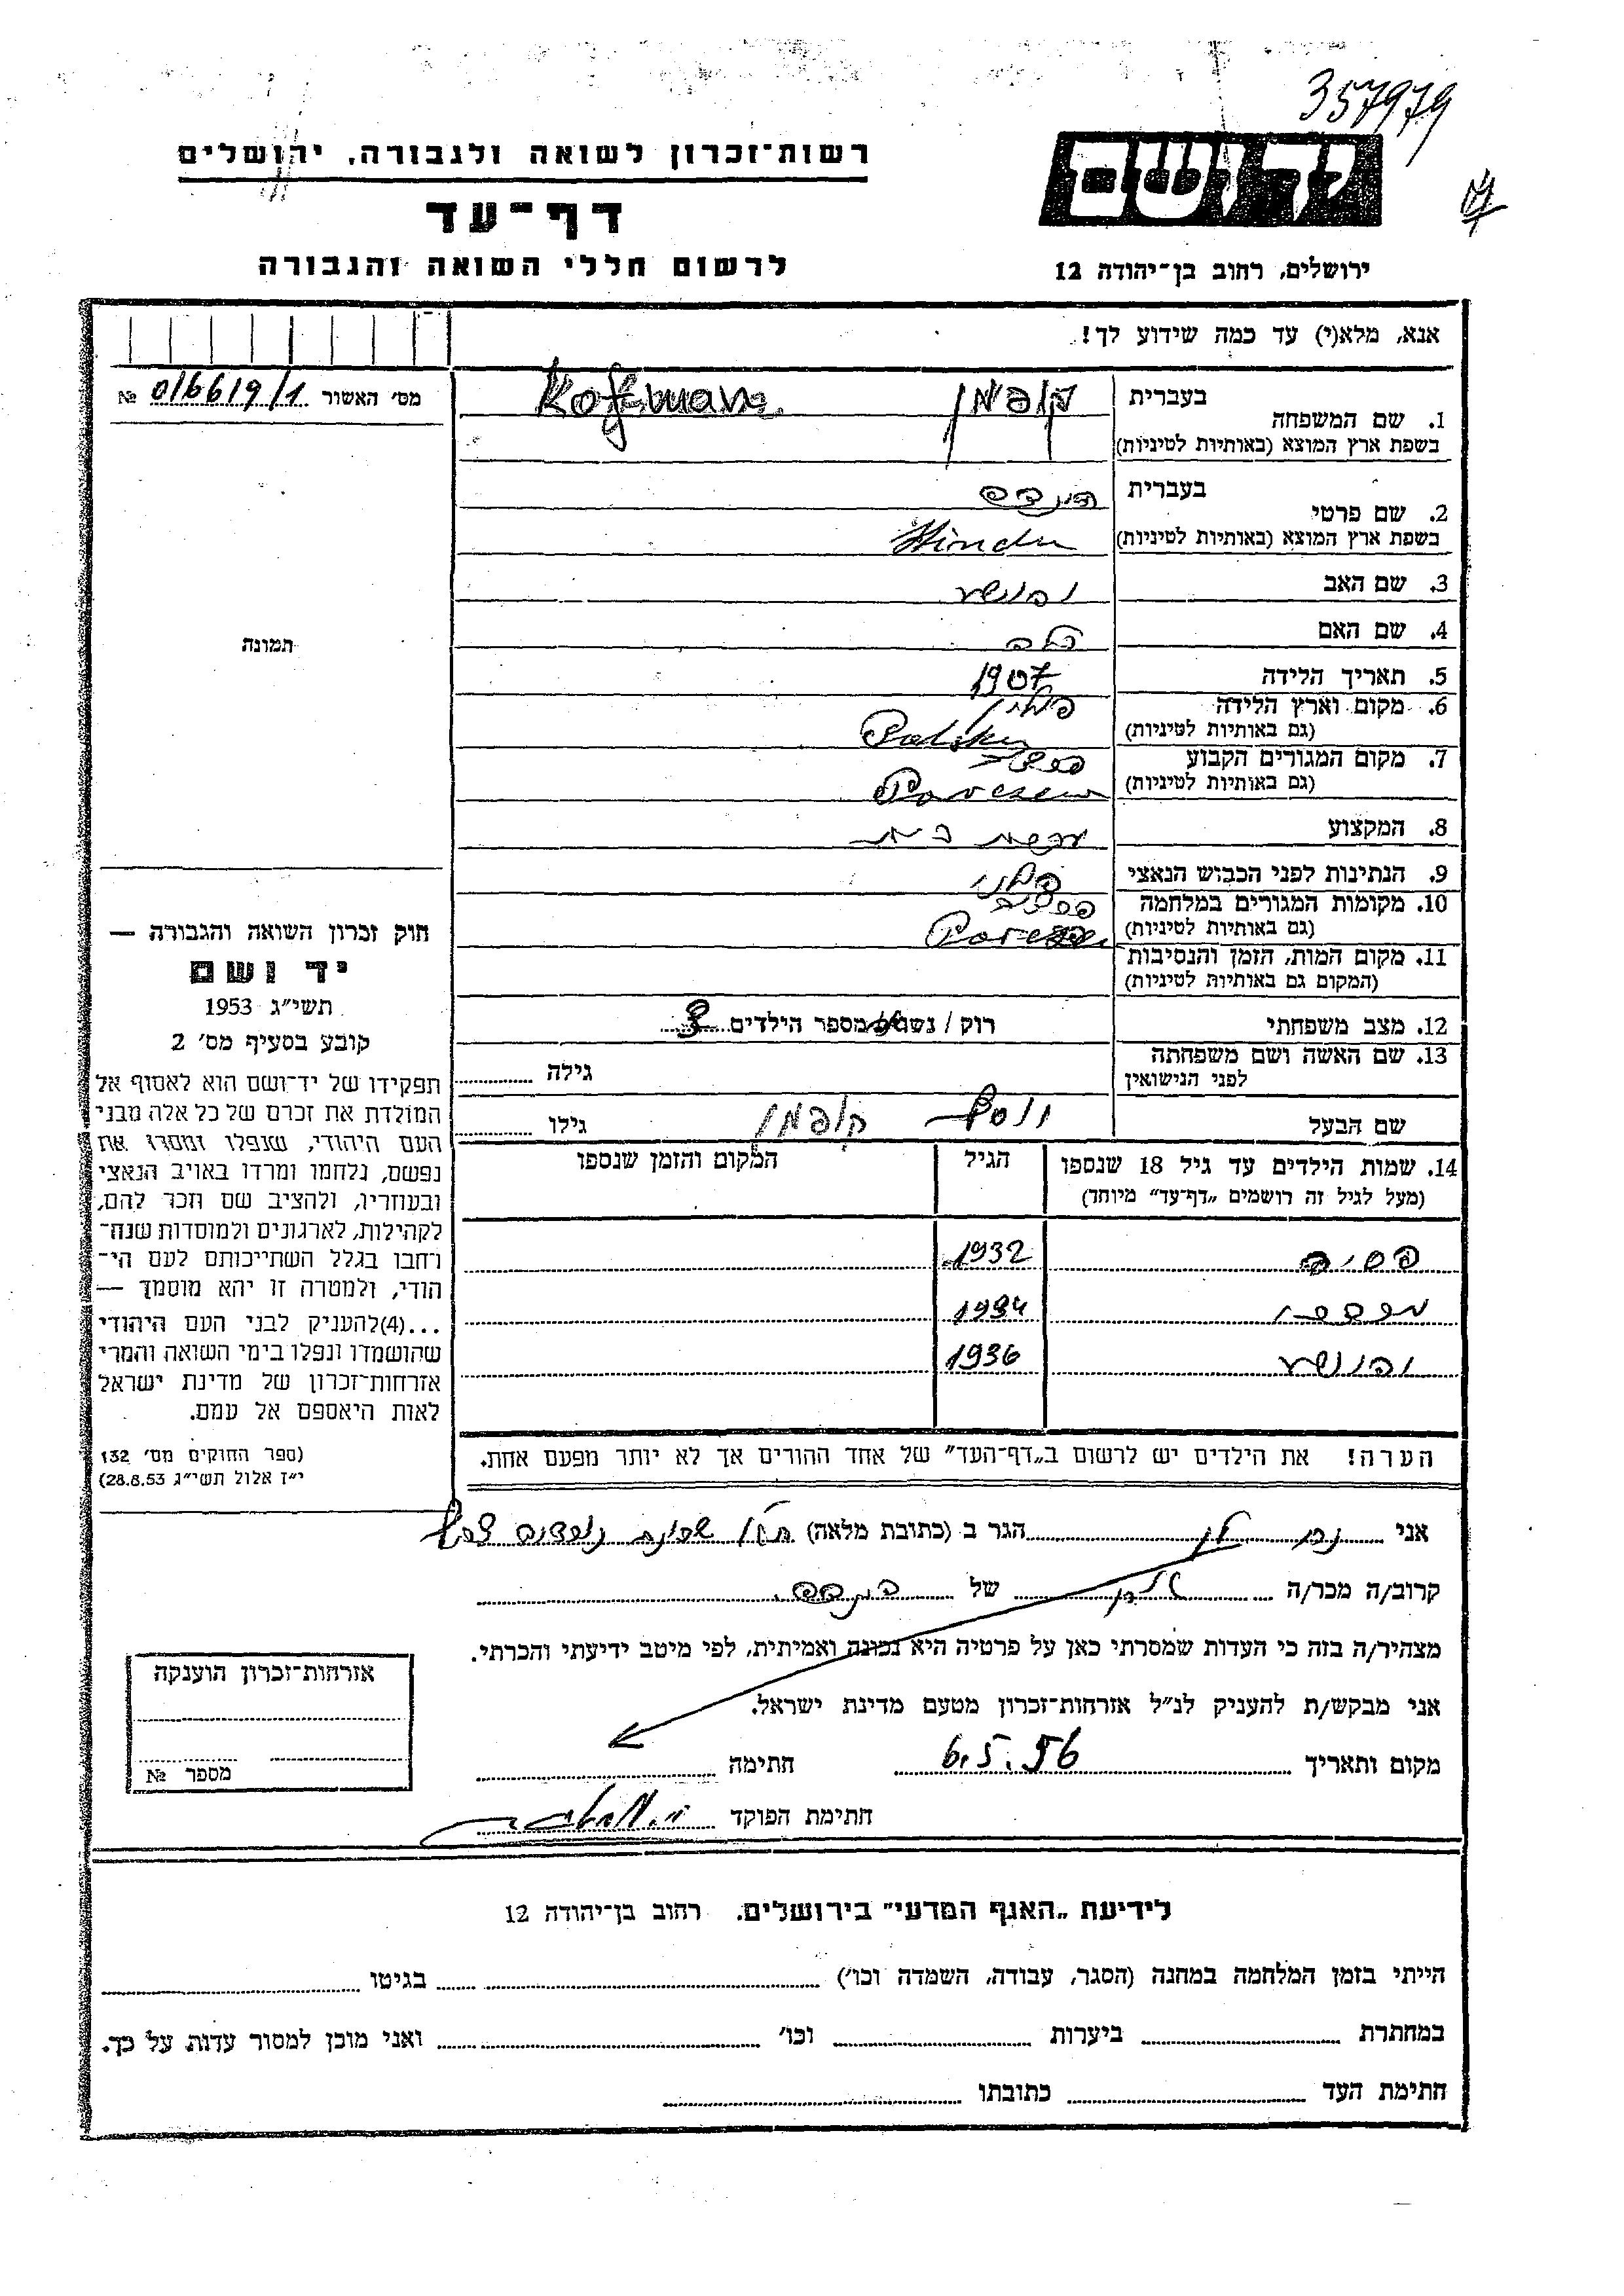 357979
רשות־זכרון לשואה ולגבורה, ירושלים
יד ושם
דף־עד
לרשום חללי השואה והגבורה
ירושלים, רחוב בן־יהודה 12
אנא, מלא(י) עד כמה שידוע לך!
מס׳ האשור № 016619/1
1. שם המשפחה בעברית קופמן Kofman
בשפת ארץ המוצא (באותיות לטיניות)
2. שם פרטי בעברית הינדה
בשפת ארץ המוצא (באותיות לטיניות) Hinda
3. שם האב יהושע
4. שם האם
5. תאריך הלידה 1907
6. מקום וארץ הלידה פולין
(גם באותיות לטיניות) Polska
7. מקום המגורים הקבוע
(גם באותיות לטיניות)
8. המקצוע עקרת בית
9. הנתינות לפני הכבוש הנאצי פולני
10. מקומות המגורים במלחמה
(גם באותיות לטיניות)
11. מקום המות, הזמן והנסיבות
(המקום גם באותיות לטיניות)
12. מצב משפחתי רוק / נשוי מספר הילדים 3
13. שם האשה ושם משפחתה
לפני הנישואין גילה
שם הבעל יוסף קופמן גילו
14. שמות הילדים עד גיל 18 שנספו הגיל המקום והזמן שנספו
(מעל לגיל זה רושמים „דף־עד״ מיוחד)
1932
1934
יהושע 1936
הערה! את הילדים יש לרשום ב„דף־העד״ של אחד ההורים אך לא יותר מפעם אחת.
תמונה
חוק זכרון השואה והגבורה —
יד ושם
תשי״ג 1953
קובע בסעיף מס׳ 2
תפקידו של יד־ושם הוא לאסוף אל
המולדת את זכרם של כל אלה מבני
העם היהודי, שנפלו ומסרו את
נפשם, נלחמו ומרדו באויב הנאצי
ובעוזריו, ולהציב שם וזכר להם,
לקהילות, לארגונים ולמוסדות שנח־
רחבו בגלל השתייכותם לעם הי־
הודי, ולמטרה זו יהא מוסמך —
...(4)להעניק לבני העם היהודי
שהושמדו ונפלו בימי השואה והמרי
אזרחות־זכרון של מדינת ישראל
לאות היאספם אל עמם.
(ספר החוקים מס׳ 132
י״ז אלול תשי״ג 28.8.53)
אני הגר ב (כתובת מלאה)
קרוב/ה מכר/ה של הינדה
מצהיר/ה בזה כי העדות שמסרתי כאן על פרטיה היא נכונה ואמיתית, לפי מיטב ידיעתי והכרתי.
אני מבקש/ת להעניק לנ״ל אזרחות־זכרון מטעם מדינת ישראל.
מקום ותאריך 6.5.56 חתימה
חתימת הפוקד
אזרחות־זכרון הוענקה
מספר №
לידיעת „האגף המדעי״ בירושלים, רחוב בן־יהודה 12
הייתי בזמן המלחמה במחנה (הסגר, עבודה, השמדה וכו׳) בגיטו
במחתרת ביערות וכו׳ ואני מוכן למסור עדות על כך.
חתימת העד כתובתו